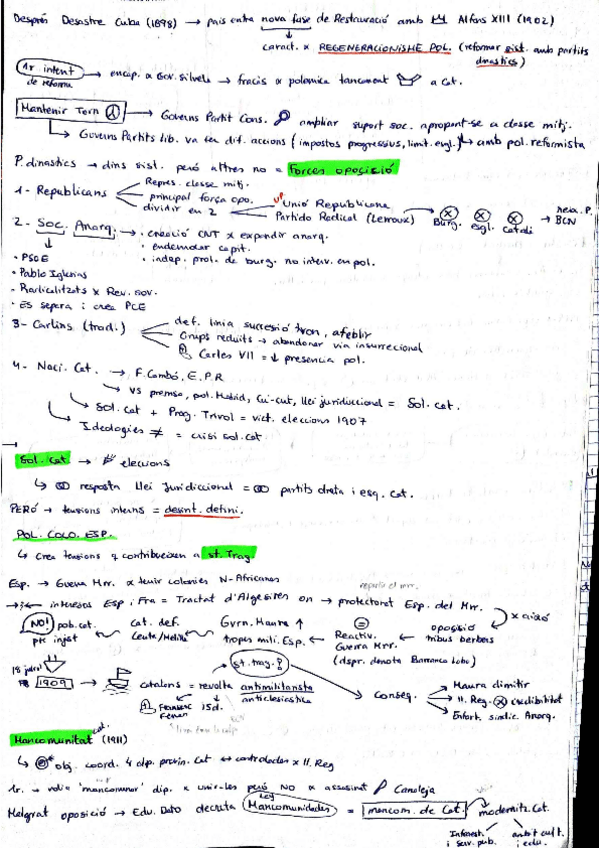 Després Desastre Cuba (1898) → pais entra nova fase de Restauració amb Alfons XIII (1902)
caract. x REGENERACIONISME POL. (reformar sist. amb partits dinastics)
1r intent de reforma → encap. x Gov. Silvela → fracàs x polemica tancament a Cat.
Mantenir Torn → Governs Partit Cons. ampliar suport soc. apropant-se a classe mitj.
↳ Governs Partits Lib. va ten dif. accions (impostos progressius, limit. esgl.) ↳ amb pol. reformista
P. dinastics → dins sist. però altres no = Forces oposició
1- Republicans
Repres. classe mitj.
principal força opo.
dividir en 2
Unió Republicana
Partido Radical (Lerroux)
Burg. esgl. Catali → P. BCN
2- Soc. Anarq.
· creació CNT x expandir anarq.
· endemolar capit.
· indep. prol. de burg. no interv. en pol.
· PSOE
· Pablo Iglesias
· Radicalitzats x Rev. sov.
· Es separa i crea PCE
3- Carlins (trad.)
def. linia successió tron, afeblir
Grups reduits → abandonar via insurreccional
Carles VII = ↓ presencia pol.
4- Naci. Cat. → F. Cambó, E.P.R
↳ VS premsa, pol. Madrid, Cu-cut, llei jurisdiccional = Sol. cat.
↳ Sol. cat + Prog. Tivol = vict. eleccions 1907
↳ Ideologies ≠ = crisi sol. cat.
Sol. Cat → eleccions
↳ resposta llei Jurisdiccional = partits dreta i esq. Cat.
PERÒ → tensions interns = desint. defini.
POL. COLO. ESP.
↳ Crea tensions q contribueixen a st. Trag.
Esp. → Guerra Mrr. x tenir colonies N-Africanes
interesos Esp i Fra = Tractat d'Algesires on → protectorat Esp. del Mrr.
NO! pob. cat. pk injast
Cat. def. Ceuta/Melilla
Gvrn. Maura ↑ tropes mili. Esp.
Reactiv. Guerra Mrr. (dspr. derrota Barranco Lobo)
oposició tribus berbers
x això
18 juliol 1909 → catalans = revolta antimilitarista anticlesiastica
st. trag.
Conseq.
Maura dimitir
H. Reg. credibilitat
Enfort. sindic. Anarq.
Mancomunitat cat. (1911)
↳ obj. coord. 4 dip. provin. Cat ↔ controlades x H. Reg
1r. → volia 'mancomunar' dip. x unir-les però NO x assasinat Canaleja
Malgrat oposició → Edu. Dato decreta Ley Mancomunidades = mancom. de Cat.
modernitz. Cat.
Infraest. i serv. pub.
ambit cult. i edu.